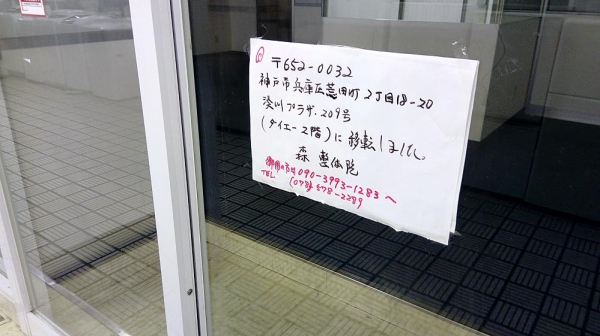 〒652-0032
神戸市兵庫区荒田町2丁目18-20
湊川プラザ.209号
(ダイエー2階)に移転しました。
森 整体院
御用の方は090-3993-1283へ
TEL (078)578-2289